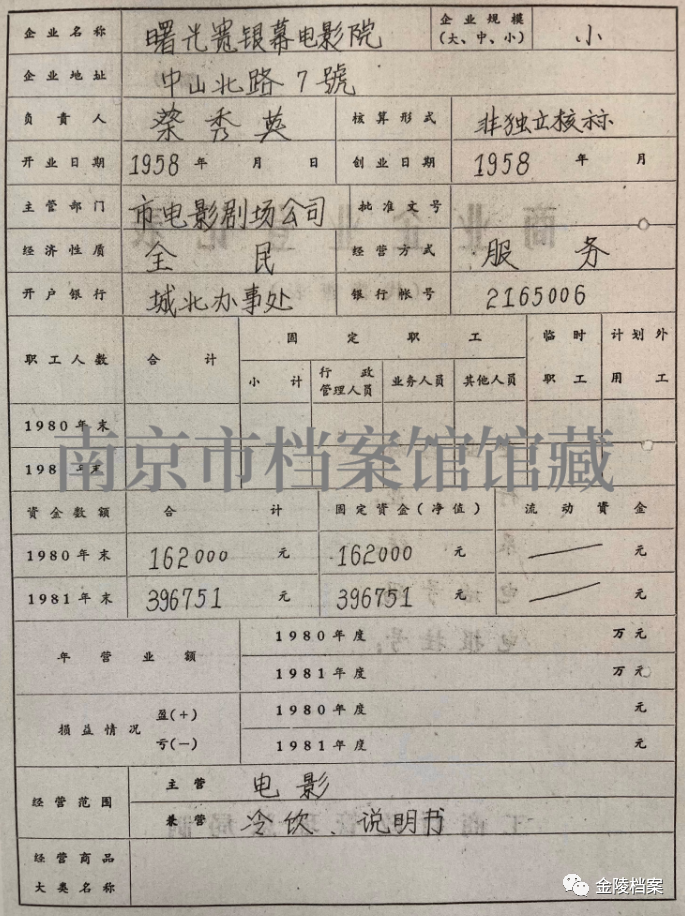 企业名称 曙光宽银幕电影院 企业规模(大、中、小) 小
企业地址 中山北路7號
负责人 蔡秀英 核算形式 非独立核祘
开业日期 1958年 月 日 创业日期 1958 年 月
主管部门 市电影剧场公司 批准文号
经济性质 全民 经营方式 服务
开户银行 城北办事处 银行帐号 2165006
职工人数 合计 固定职工 临时职工 计划外用工
小计 行政管理人员 业务人员 其他人员
1980年末
198 年末
南京市档案馆馆藏
资金数额 合计 固定资金(净值) 流动资金
1980年末 162000 元 162000 元 元
1981年末 396751 元 396751 元 元
年营业额 1980年度 万元
1981年度 万元
损益情况 盈(+) 亏(一) 1980年度 元
1981年度 元
经营范围 主营 电影
兼营 冷饮、说明书
经营商品大类名称
金陵档案